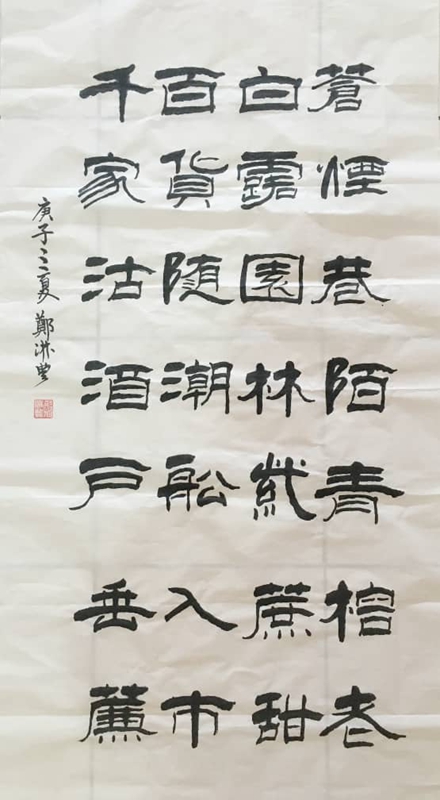 蒼煙巷陌青榕老
白露園林紫蔗甜
百貨随潮船入市
千家沽酒戶垂簾
庚子之夏 鄭